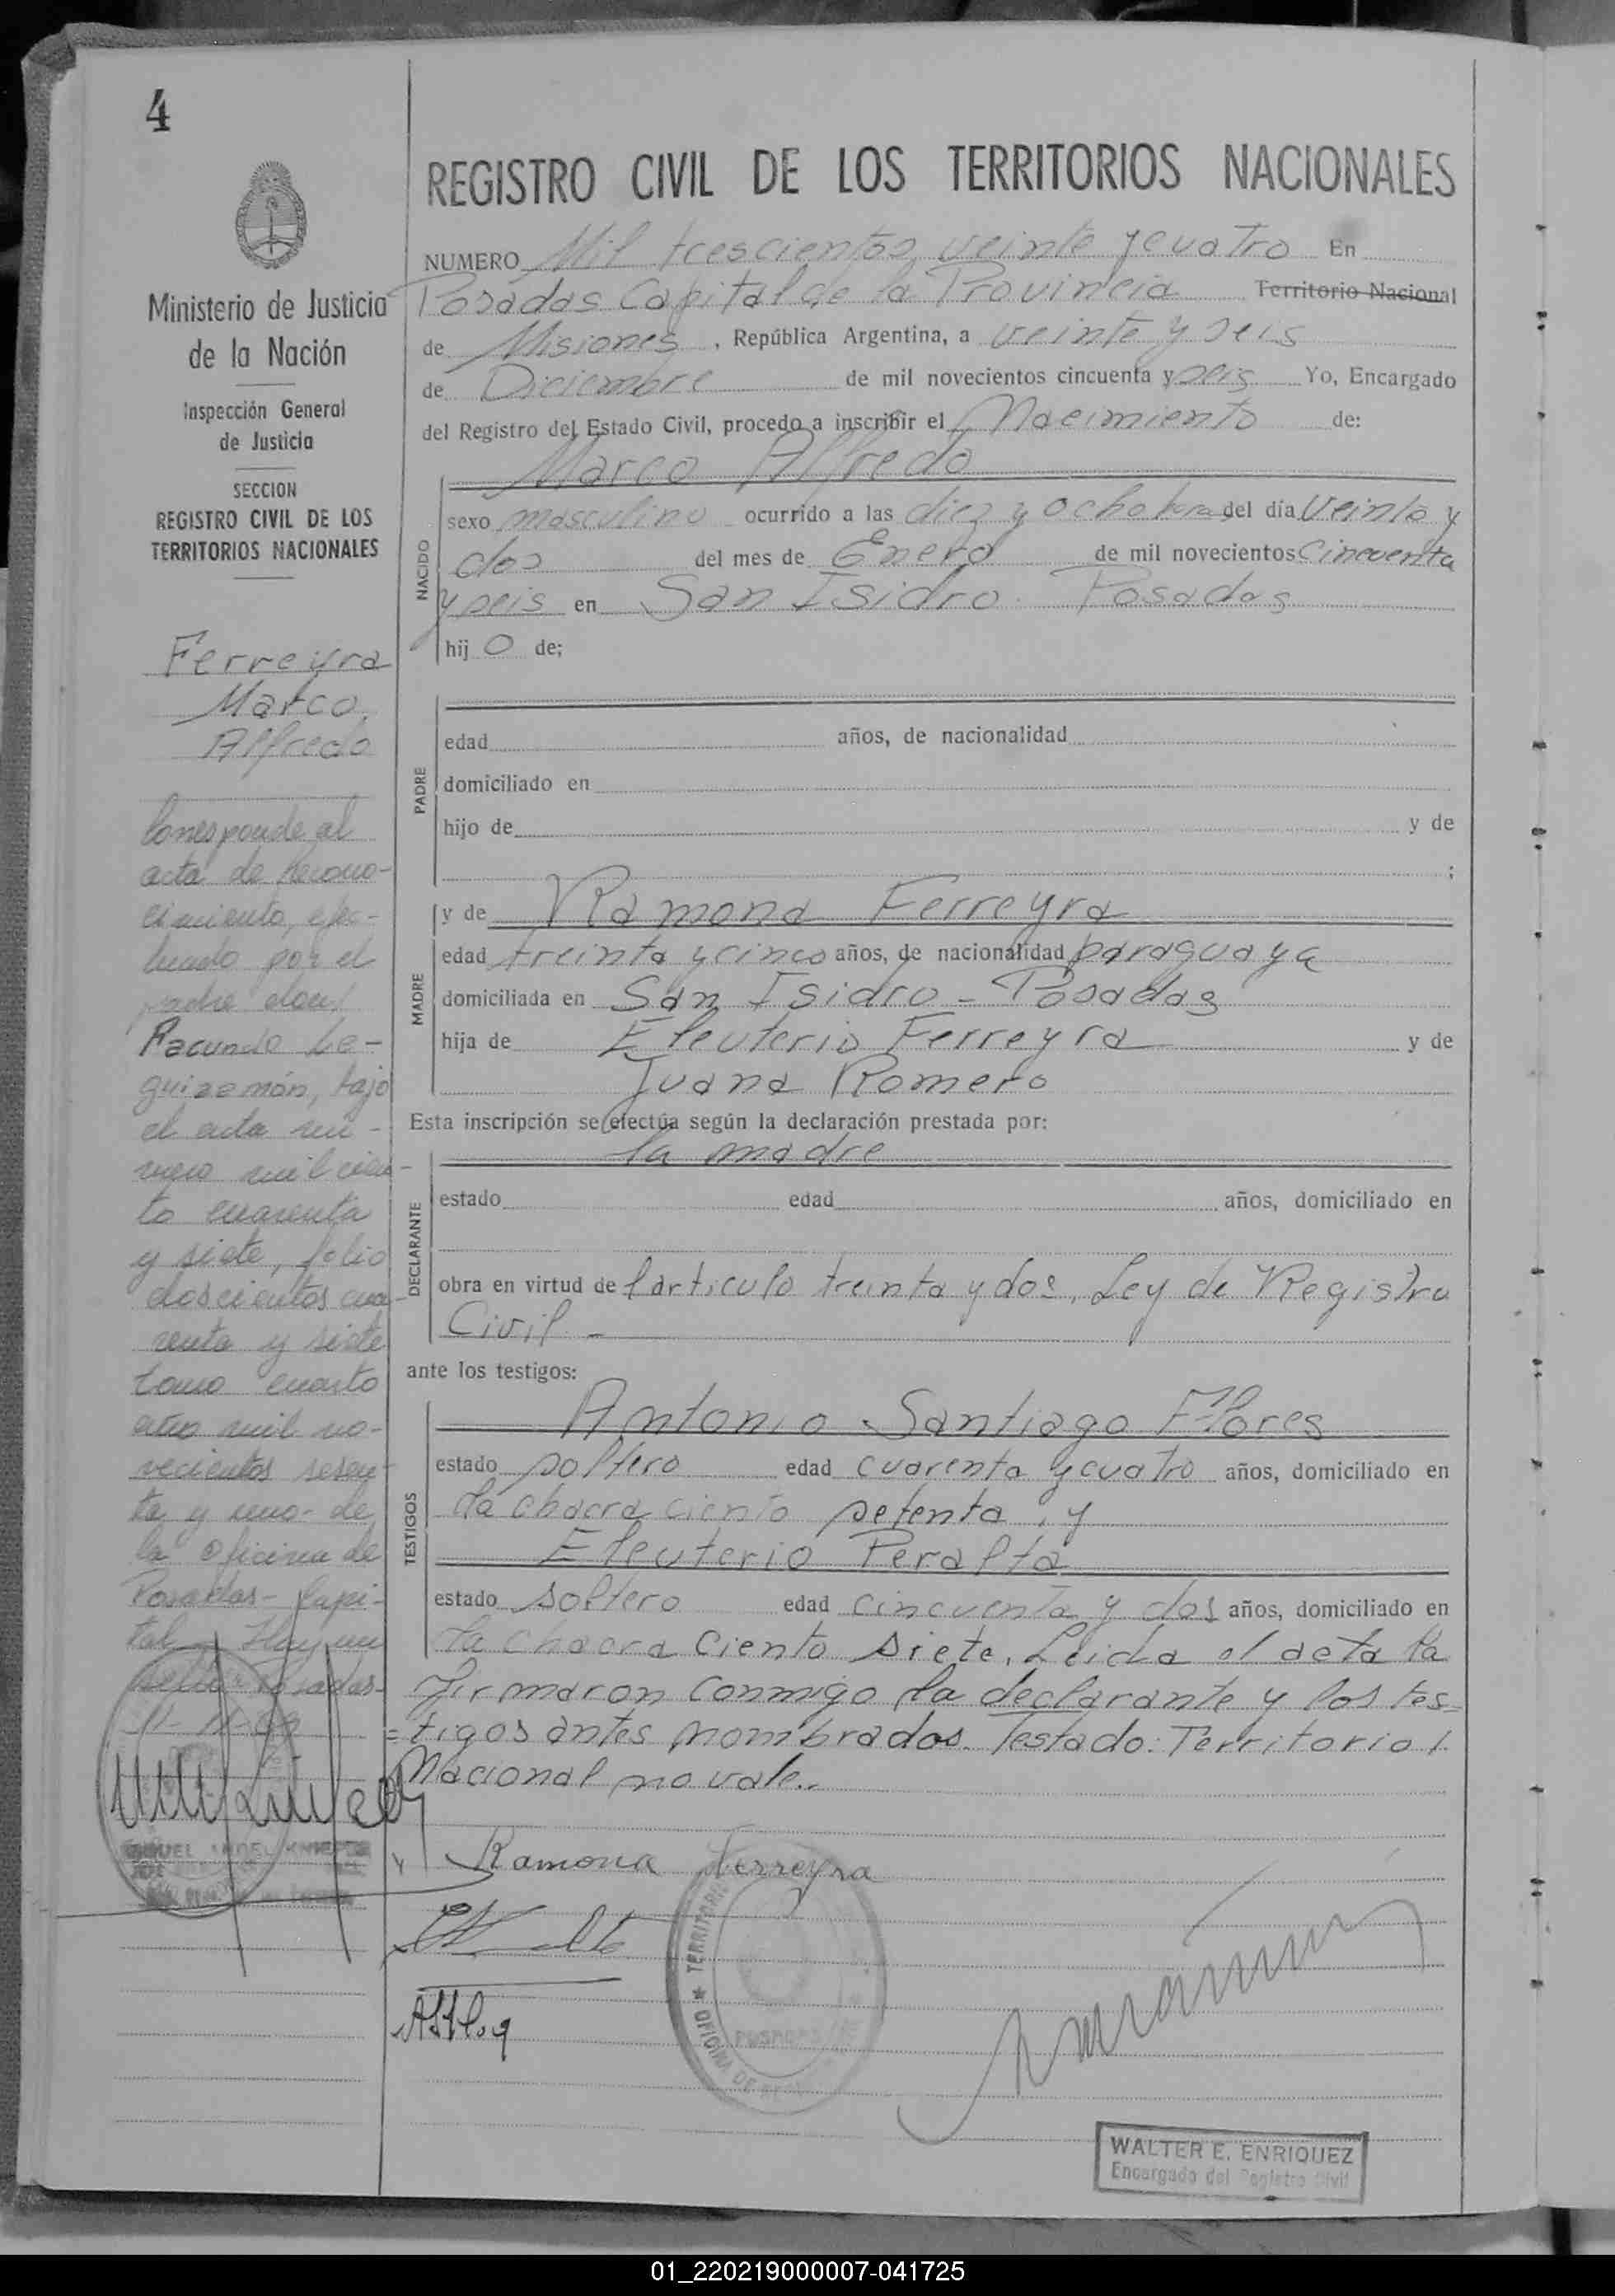 4
Ministerio de Justicia
de la Nación
Inspección General
de Justicia
SECCION
REGISTRO CIVIL DE LOS
TERRITORIOS NACIONALES
Ferreyra
Marco
Alfredo
Corresponde al
acta de recono-
cimiento, efec-
tuado por el
padre don
Facundo Le-
guizamón, bajo
el acta nú-
mero mil cien-
to cuarenta
y siete, folio
doscientos cua-
renta y siete
tomo cuarto
año mil no-
vecientos sesen-
ta y uno - de
la Oficina de
Posadas - Capi-
tal - Hay un
sello - Posadas -
REGISTRO CIVIL DE LOS TERRITORIOS NACIONALES
NUMERO Mil trescientos veinte y cuatro En
Posadas Capital de la Provincia Territorio Nacional
de Misiones, República Argentina, a veinte y seis
de Diciembre de mil novecientos cincuenta y seis Yo, Encargado
del Registro del Estado Civil, procedo a inscribir el Nacimiento de:
Marco Alfredo
NACIDO
sexo masculino ocurrido a las diez y ocho horas del día Veinte y
dos del mes de Enero de mil novecientos Cincuenta
y seis en San Isidro. Posadas
hij o de;
PADRE
edad años, de nacionalidad
domiciliado en
hijo de y de
;
MADRE
y de Ramona Ferreyra
edad treinta y cinco años, de nacionalidad paraguaya
domiciliada en San Isidro - Posadas
hija de Eleuterio Ferreyra y de
Juana Romero
Esta inscripción se efectúa según la declaración prestada por:
la madre
DECLARANTE
estado edad años, domiciliado en
obra en virtud de l articulo treinta y dos, Ley de Registro
Civil -
ante los testigos:
TESTIGOS
Antonio Santiago Flores
estado soltero edad cuarenta y cuatro años, domiciliado en
la chacra ciento setenta, y
Eleuterio Peralta
estado soltero edad cincuenta y dos años, domiciliado en
la chacra ciento siete. Leida el acta la
firmaron conmigo la declarante y los tes=
=tigos antes nombrados. Testado: Territorio/
Nacional no vale..
Ramona Ferreyra
TERRITORI
OFICINA DE
POSADAS
WALTER E. ENRIQUEZ
Encargado del Registro Civil
01_220219000007-041725